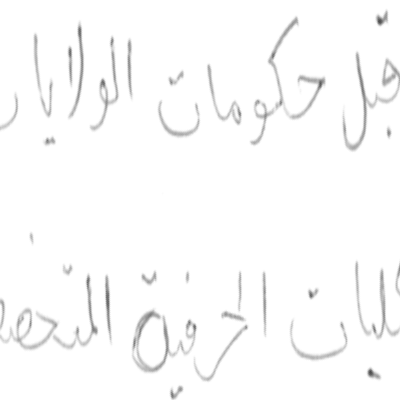 قبل حكومات الولايات
كليات الحرفية المتخصـ